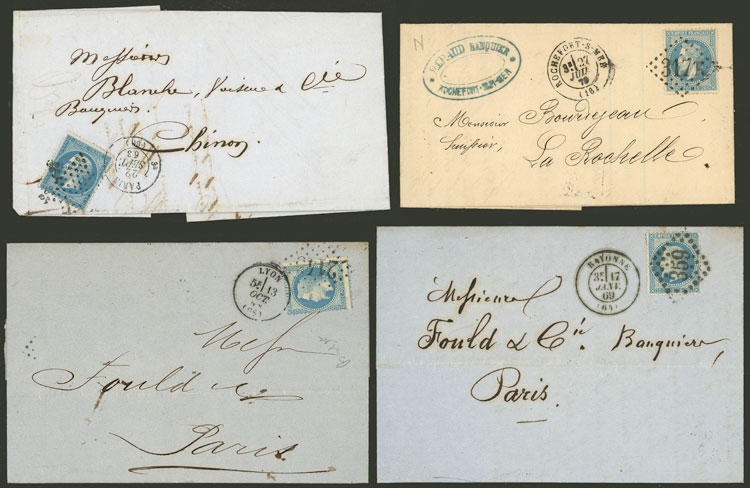 Messieurs
Blanche, Voisine & Cie
Banquiers
Chinon
PARIS
3E
22
SEPT.
63
(60)
N
BANQUIER
ROCHEFORT-SUR-MER
ROCHEFORT-S-MER
3E 27
JUIL.
70
(16)
3175
Monsieur Bourdejeau
Huissier,
La Rochelle
LYON
5E 13
OCT.
(68)
2145
Mess
Fould &
Paris
BAYONNE
3E 17
JANV.
69
(64)
359
Messieurs
Fould & Cie Banquiers,
Paris.